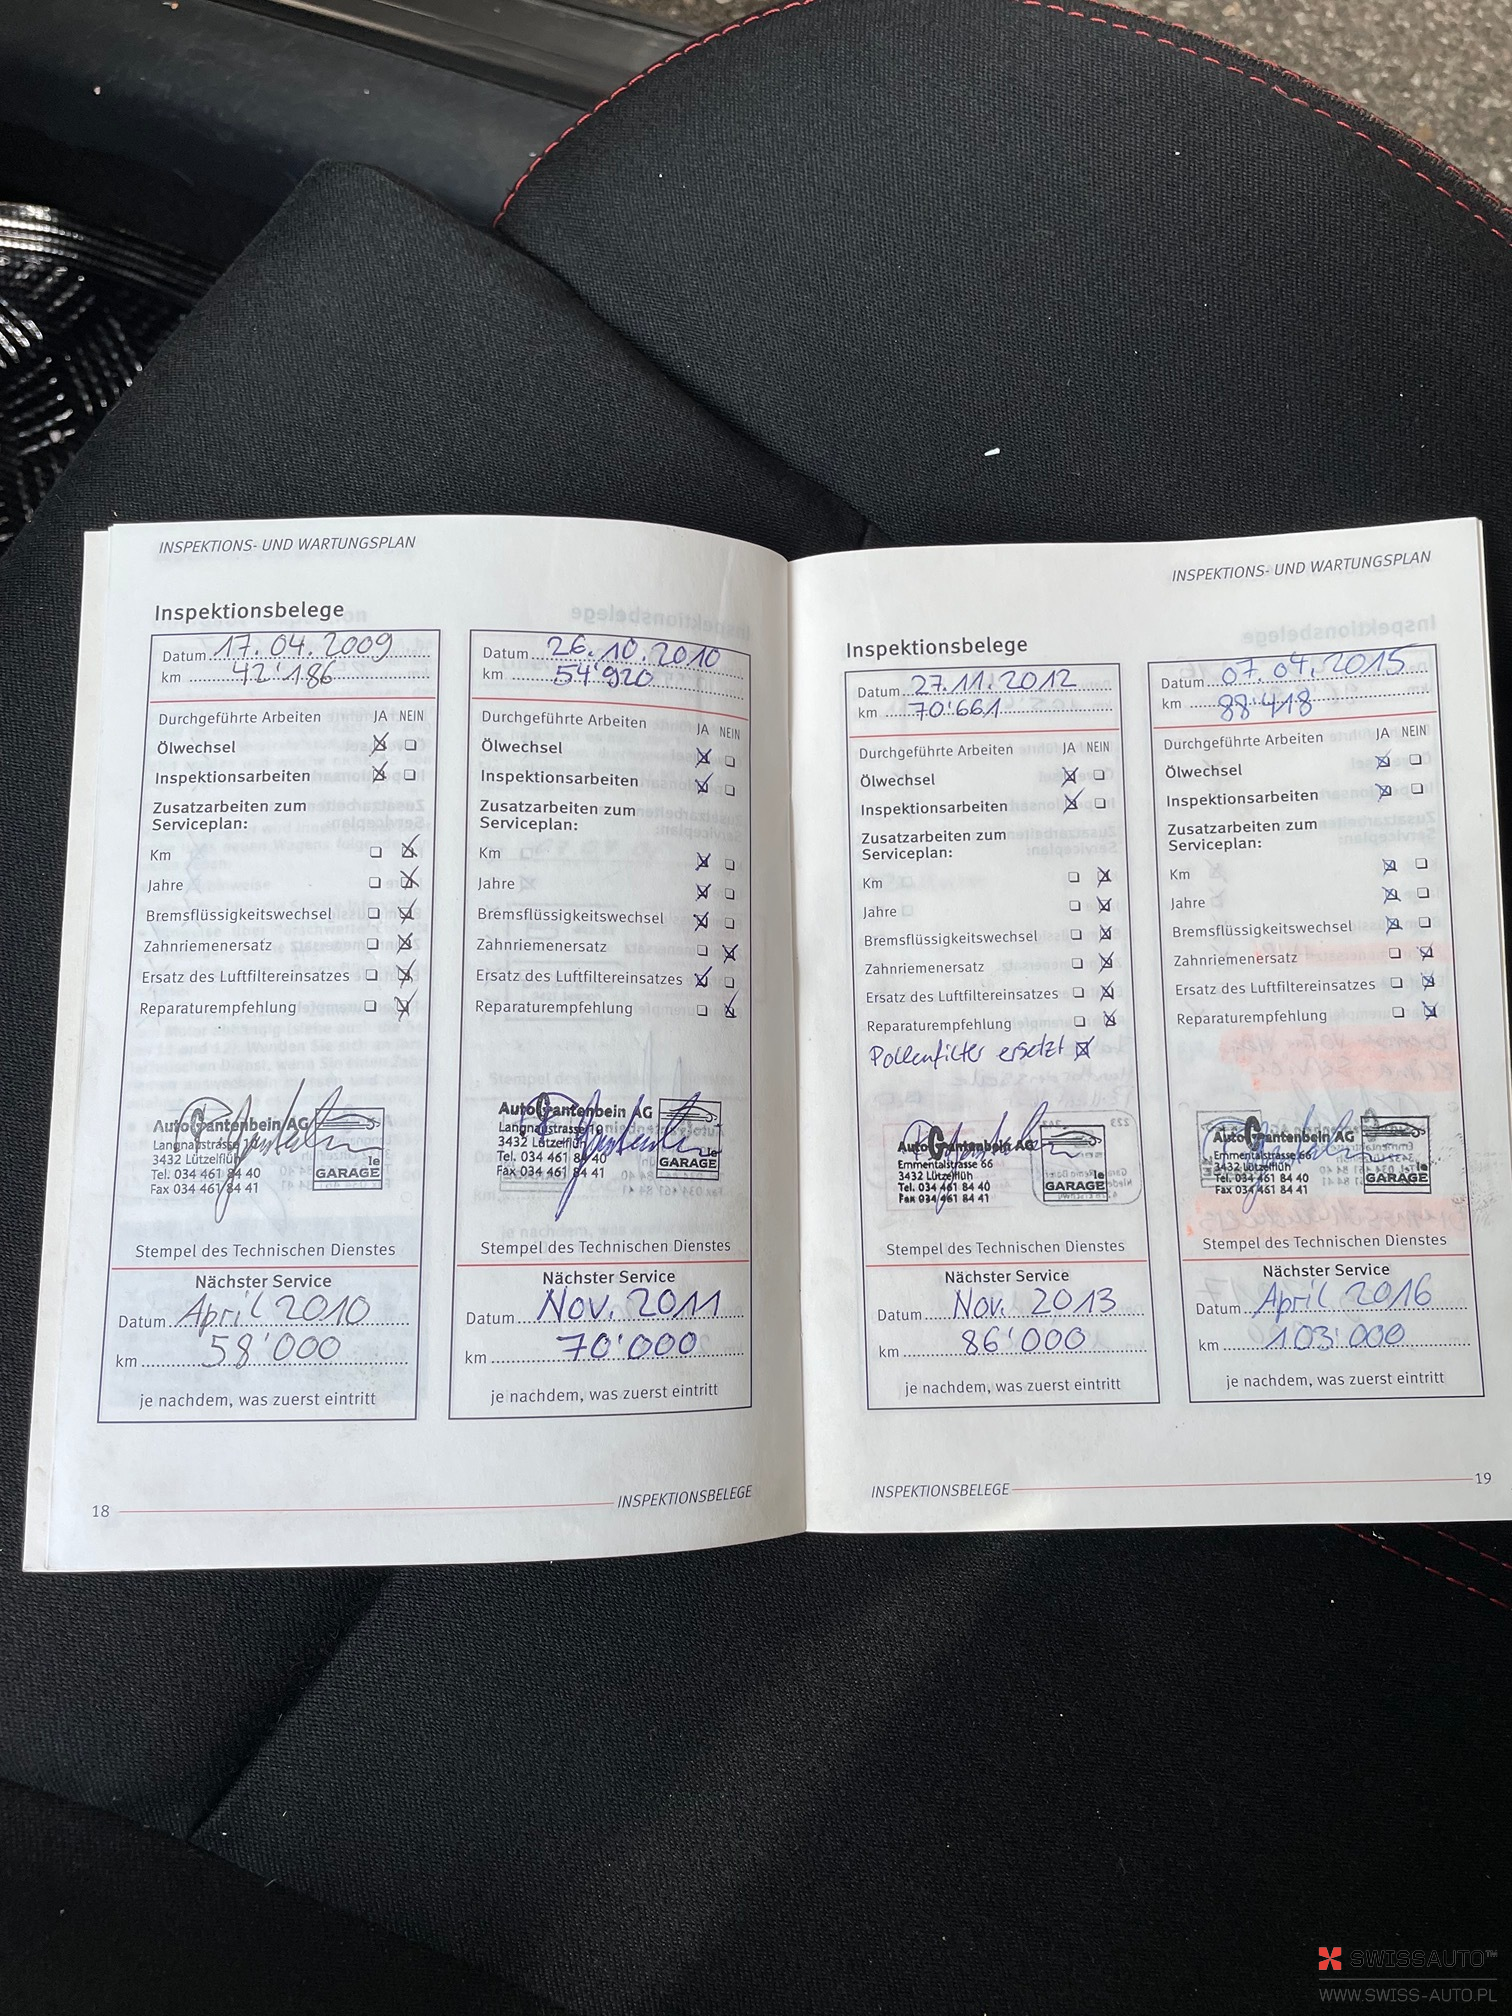 INSPEKTIONS- UND WARTUNGSPLAN
Inspektionsbelege
Datum 17.04.2009
km 42'186
Durchgeführte Arbeiten JA NEIN
Ölwechsel
Inspektionsarbeiten
Zusatzarbeiten zum
Serviceplan:
Km
Jahre
Bremsflüssigkeitswechsel
Zahnriemenersatz
Ersatz des Luftfiltereinsatzes
Reparaturempfehlung
Auto Gantenbein AG
Langnaustrasse
3432 Lützelflüh
Tel. 034 461 84 40
Fax 034 461 84 41
le
GARAGE
Stempel des Technischen Dienstes
Nächster Service
Datum April 2010
km 58'000
je nachdem, was zuerst eintritt
Datum 26.10.2010
km 54'920
Durchgeführte Arbeiten JA NEIN
Ölwechsel
Inspektionsarbeiten
Zusatzarbeiten zum
Serviceplan:
Km
Jahre
Bremsflüssigkeitswechsel
Zahnriemenersatz
Ersatz des Luftfiltereinsatzes
Reparaturempfehlung
Auto Gantenbein AG
Langnaustrasse
3432 Lützelflüh
Tel. 034 461 84 40
Fax 034 461 84 41
le
GARAGE
Stempel des Technischen Dienstes
Nächster Service
Datum Nov. 2011
km 70'000
je nachdem, was zuerst eintritt
18
INSPEKTIONSBELEGE
INSPEKTIONS- UND WARTUNGSPLAN
Inspektionsbelege
Datum 27.11.2012
km 70'661
Durchgeführte Arbeiten JA NEIN
Ölwechsel
Inspektionsarbeiten
Zusatzarbeiten zum
Serviceplan:
Km
Jahre
Bremsflüssigkeitswechsel
Zahnriemenersatz
Ersatz des Luftfiltereinsatzes
Reparaturempfehlung
Pollenfilter ersetzt
Auto Gantenbein AG
Emmentalstrasse 66
3432 Lützelflüh
Tel. 034 461 84 40
Fax 034 461 84 41
le
GARAGE
Stempel des Technischen Dienstes
Nächster Service
Datum Nov. 2013
km 86'000
je nachdem, was zuerst eintritt
Datum 07.04.2015
km 88'418
Durchgeführte Arbeiten JA NEIN
Ölwechsel
Inspektionsarbeiten
Zusatzarbeiten zum
Serviceplan:
Km
Jahre
Bremsflüssigkeitswechsel
Zahnriemenersatz
Ersatz des Luftfiltereinsatzes
Reparaturempfehlung
Auto Gantenbein AG
Emmentalstrasse 66
3432 Lützelflüh
Tel. 034 461 84 40
Fax 034 461 84 41
le
GARAGE
Stempel des Technischen Dienstes
Nächster Service
Datum April 2016
km 103'000
je nachdem, was zuerst eintritt
INSPEKTIONSBELEGE
19
SWISSAUTO™
WWW.SWISS-AUTO.PL